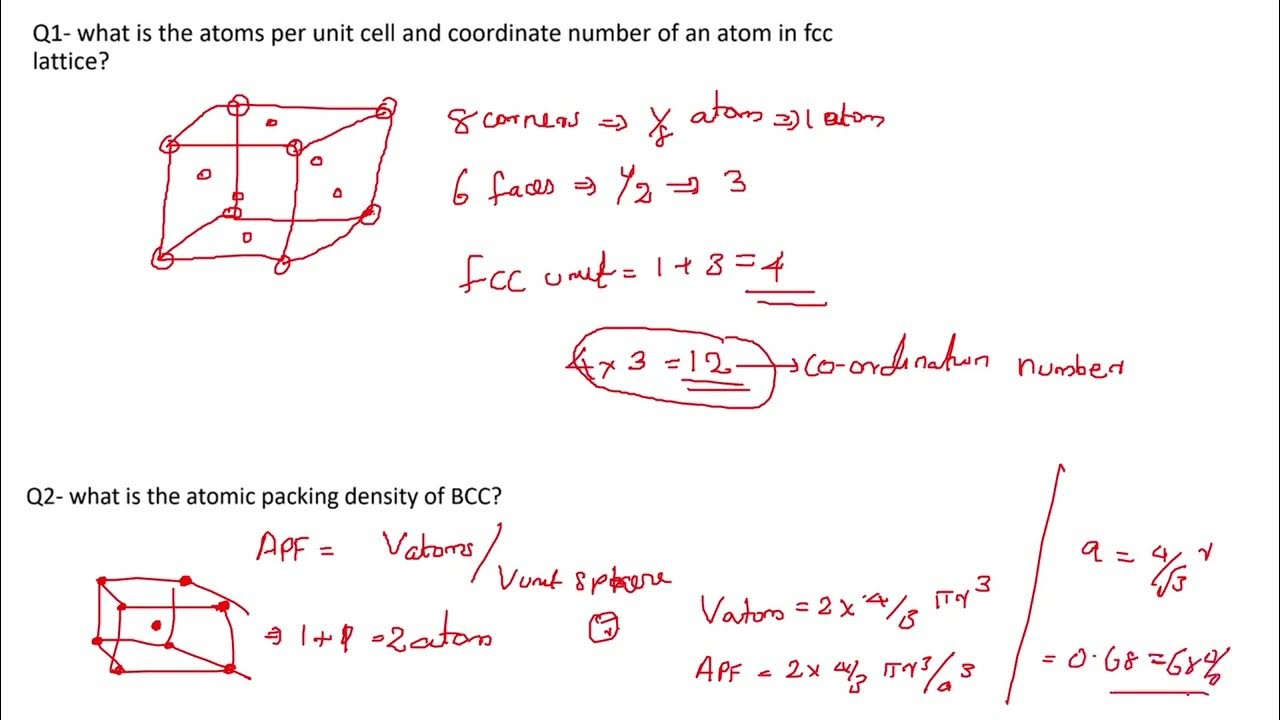 Q1- what is the atoms per unit cell and coordinate number of an atom in fcc
lattice?
8 corners ⇒ 1/8 atom ⇒ 1 atom
6 faces ⇒ 1/2 → 3
fcc unit = 1 + 3 = 4
4 × 3 = 12 → co-ordination number
Q2- what is the atomic packing density of BCC?
APF = Vatoms / Vunit sphere
⇒ 1 + 1 = 2 atoms
Vatoms = 2 × 4/3 πr³
APF = 2 × 4/3 πr³/a³
a = 4/√3 r
= 0.68 = 68%